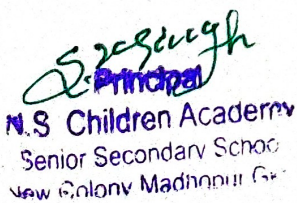 Principal
N.S Children Academy
Senior Secondary Schoo
New Colony Madhopur